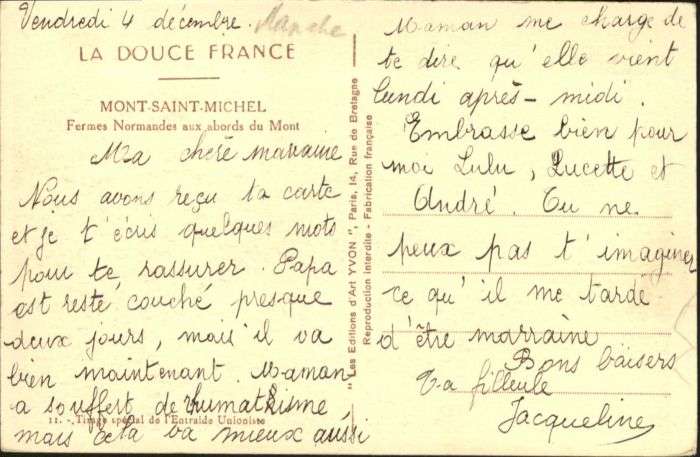 Vendredi 4 décembre. Manche
LA DOUCE FRANCE
MONT-SAINT-MICHEL
Fermes Normandes aux abords du Mont
Ma chère marraine
Nous avons reçu ta carte
et je t'écris quelques mots
pour te rassurer. Papa
est resté couché presque
deux jours, mais il va
bien maintenant. Maman
a souffert de rhumatisme
11. - Tirage spécial de l'Entraide Unioniste
mais cela va mieux aussi
" Les Editions d'Art YVON ", Paris, 14, Rue de Bretagne
Reproduction Interdite - Fabrication française
Maman me charge de
te dire qu'elle vient
lundi après-midi.
Embrasse bien pour
moi Lulu, Lucette et
André. Tu ne
peux pas t'imaginer
ce qu'il me tarde
d'être marraine
Bons baisers
Ta filleule
Jacqueline